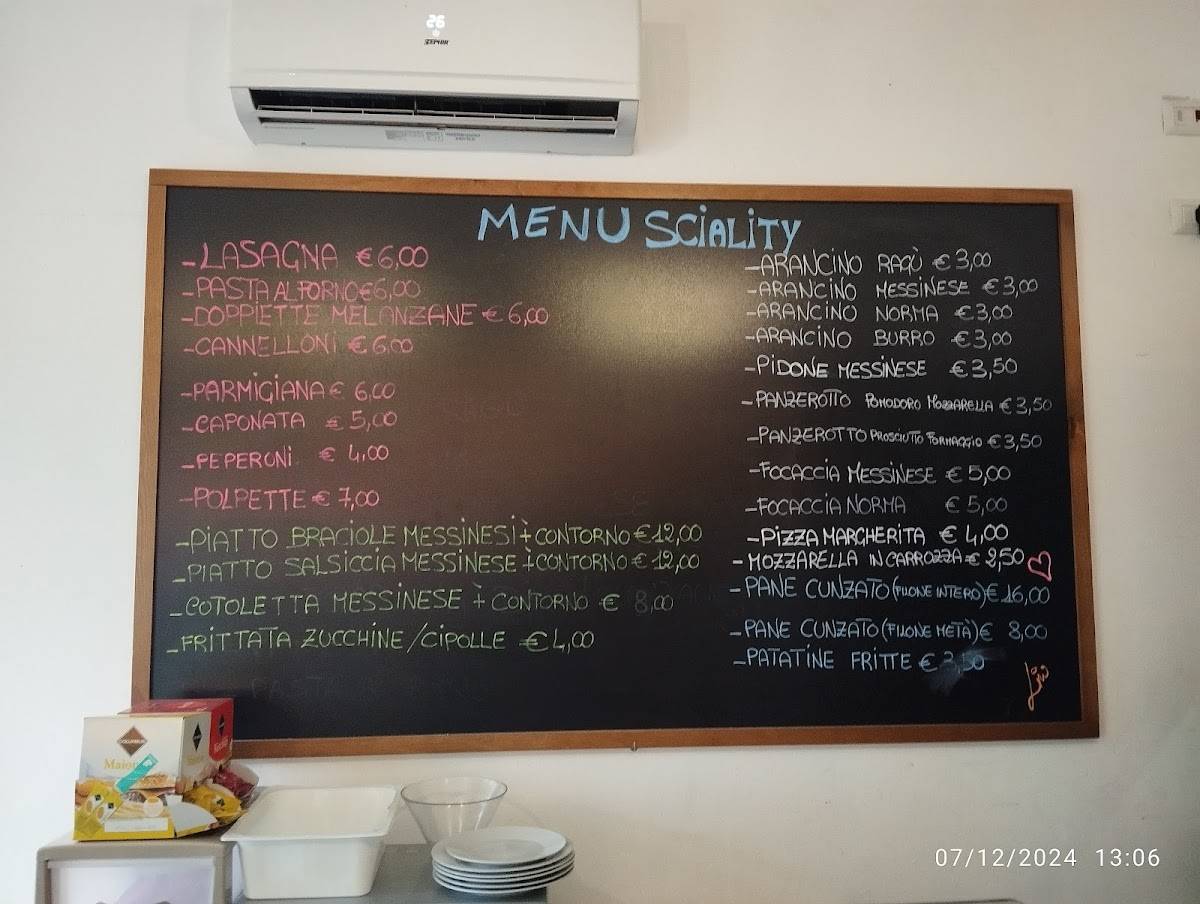 26
ZEPHIR
MENU SCIALITY
-LASAGNA €6,00
-PASTA AL FORNO €6,00
-DOPPIETTE MELANZANE €6,00
-CANNELLONI €6,00
-PARMIGIANA € 6,00
-CAPONATA €5,00
-PEPERONI € 4,00
-POLPETTE € 7,00
-PIATTO BRACIOLE MESSINESI + CONTORNO €12,00
-PIATTO SALSICCIA MESSINESE + CONTORNO € 12,00
-COTOLETTA MESSINESE + CONTORNO € 8,00
-FRITTATA ZUCCHINE/CIPOLLE €4,00
-ARANCINO RAGÙ €3,00
-ARANCINO MESSINESE €3,00
-ARANCINO NORMA €3,00
-ARANCINO BURRO €3,00
-PIDONE MESSINESE €3,50
-PANZEROTTO POMODORO MOZZARELLA €3,50
-PANZEROTTO PROSCIUTTO FORMAGGIO €3,50
-FOCACCIA MESSINESE €5,00
-FOCACCIA NORMA €5,00
-PIZZA MARGHERITA €4,00
-MOZZARELLA IN CARROZZA €2,50
-PANE CUNZATO (FILONE INTERO) €16,00
-PANE CUNZATO (FILONE METÀ) € 8,00
-PATATINE FRITTE €3,50
Maion
07/12/2024 13:06